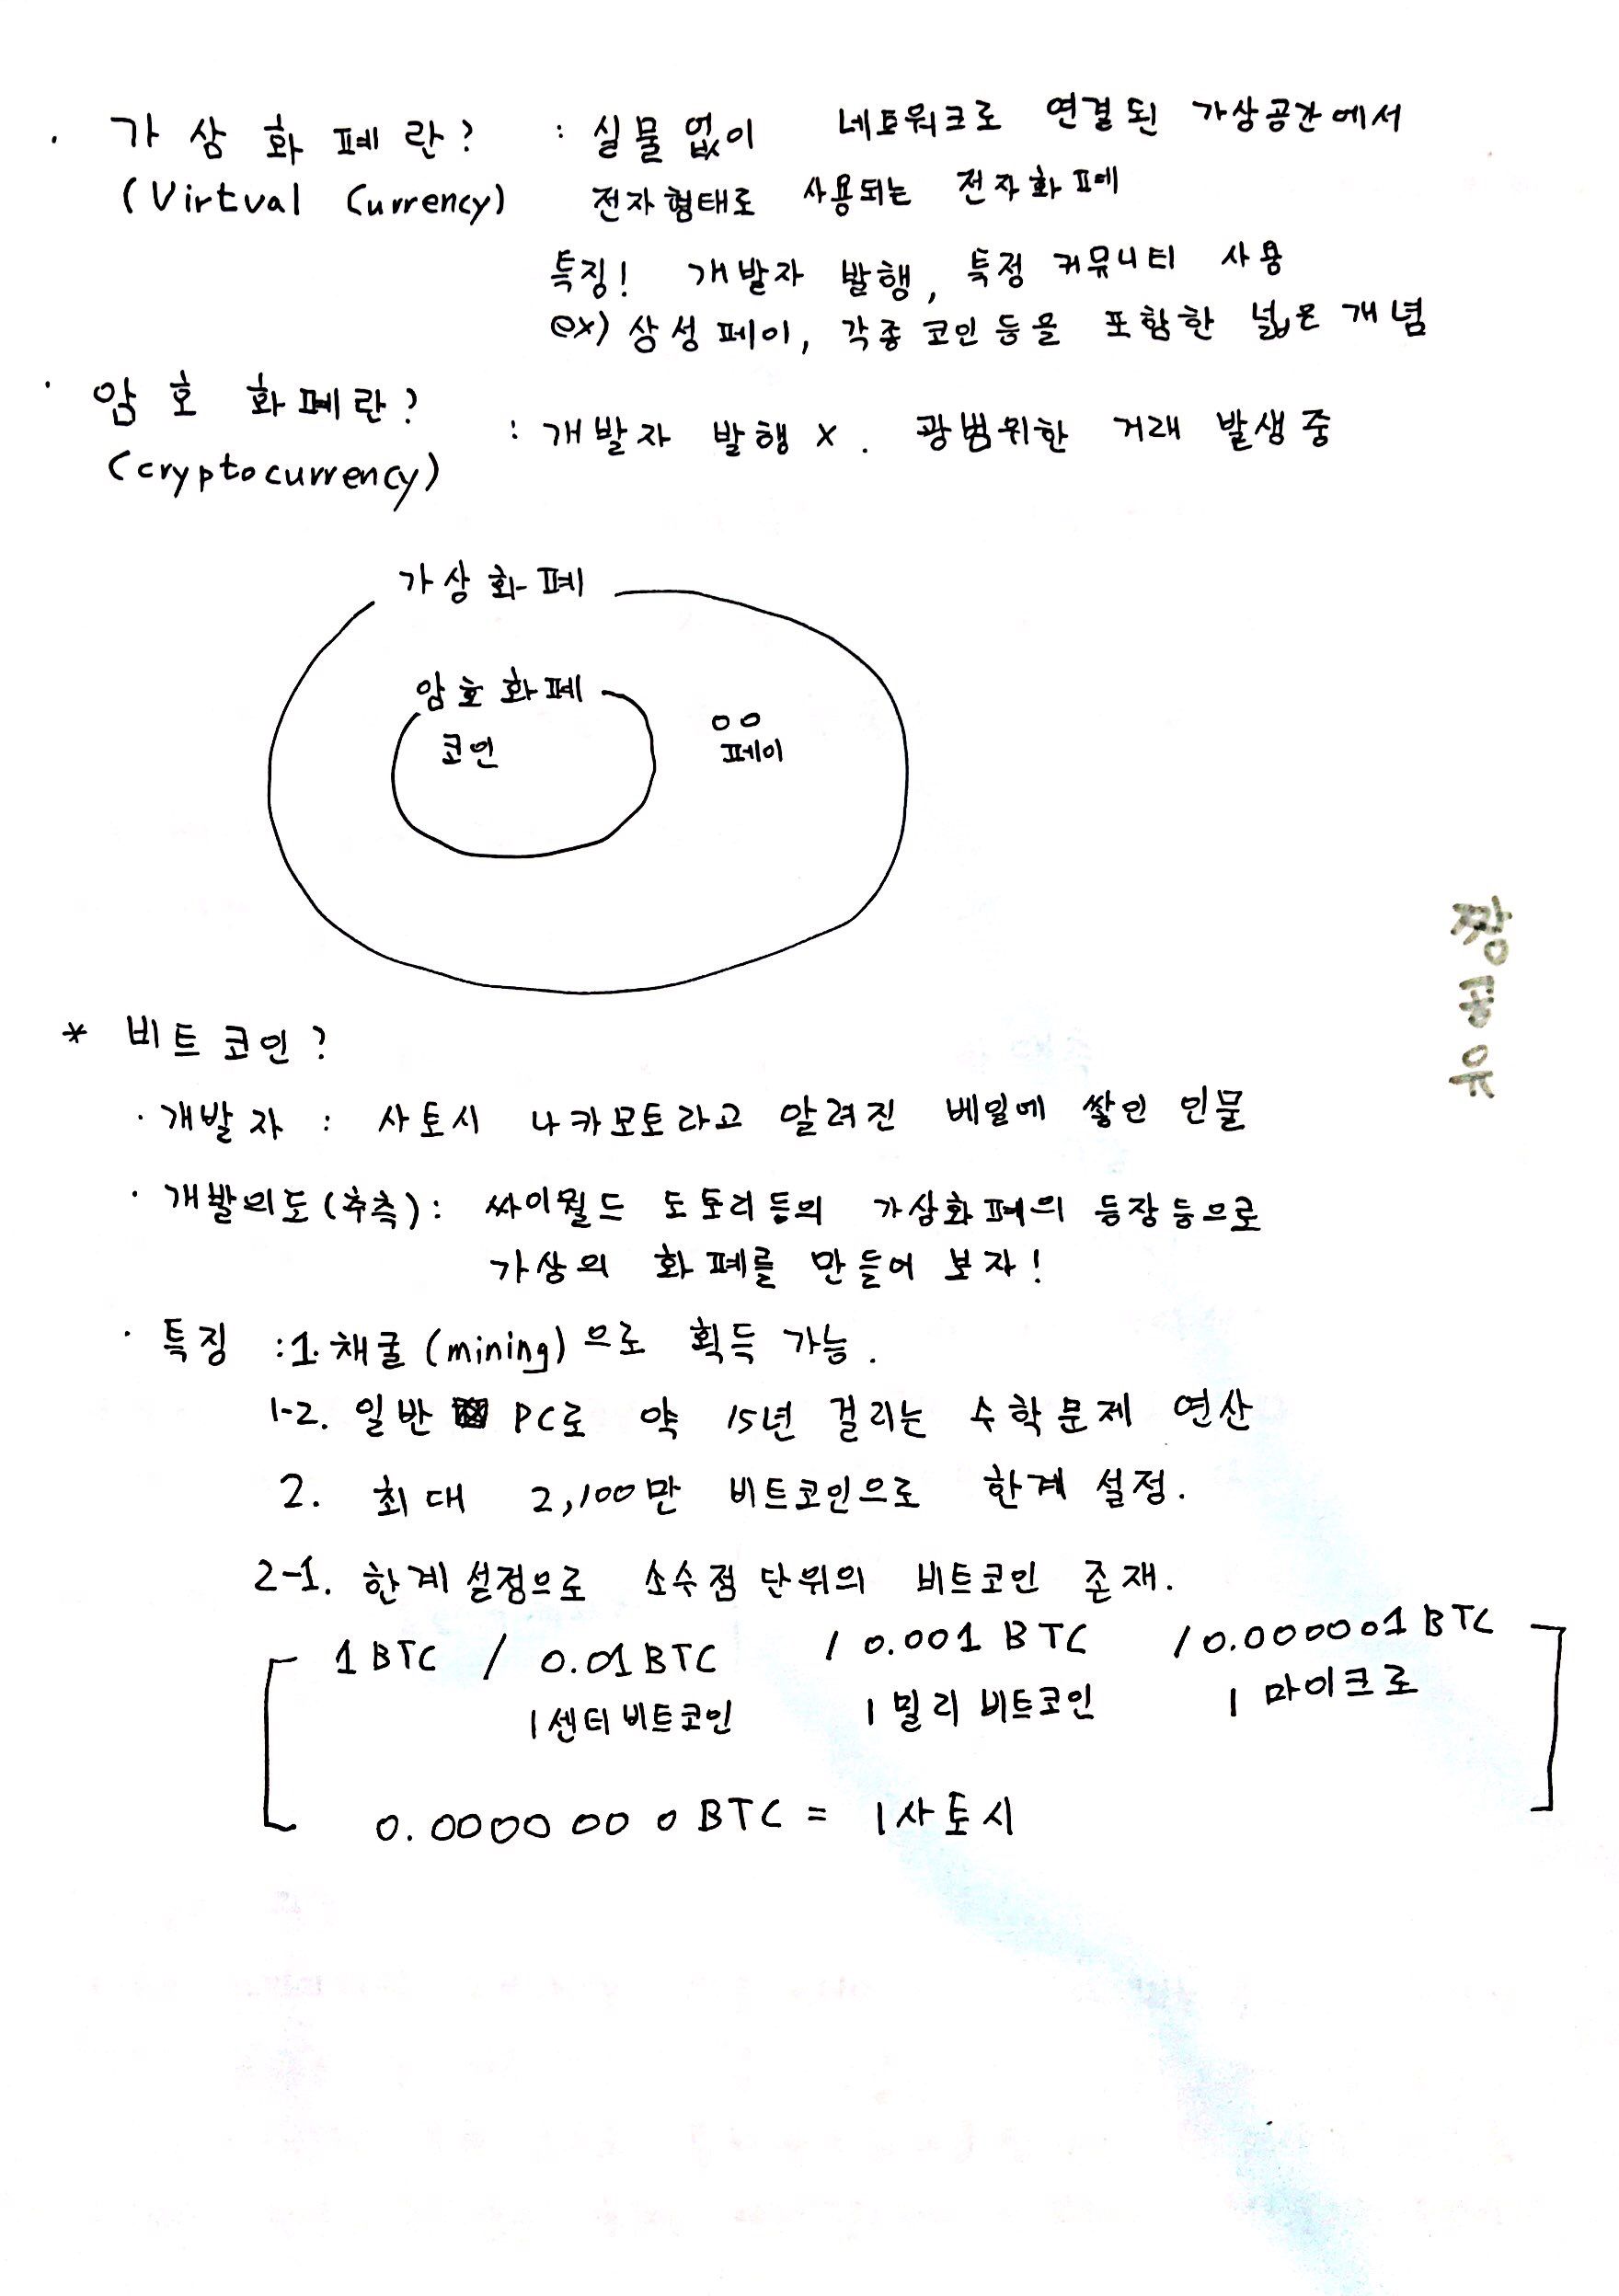 · 가상화폐란? : 실물없이 네트워크로 연결된 가상공간에서
(Virtual Currency) 전자형태로 사용되는 전자화폐
특징! 개발자 발행, 특정 커뮤니티 사용
ex) 삼성페이, 각종코인등을 포함한 넓은 개념
· 암호 화폐란? : 개발자 발행 x. 광범위한 거래 발생중
(cryptocurrency)
가상화폐
암호화폐
코인
ㅇㅇ
페이
짱공유
* 비트코인?
· 개발자 : 사토시 나카모토라고 알려진 베일에 쌓인 인물
· 개발의도(추측) : 싸이월드 도토리등의 가상화폐의 등장등으로
가상의 화폐를 만들어 보자!
· 특징 : 1. 채굴(mining)으로 획득 가능.
1-2. 일반 PC로 약 15년 걸리는 수학문제 연산
2. 최대 2,100만 비트코인으로 한계 설정.
2-1. 한계설정으로 소수점단위의 비트코인 존재.
1 BTC / 0.01 BTC / 0.001 BTC / 0.000001 BTC
1센티비트코인 1밀리비트코인 1마이크로
0.0000000 BTC = 1사토시